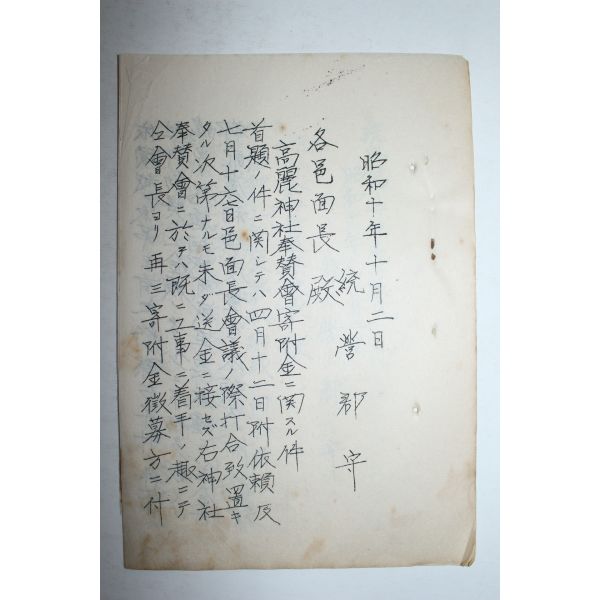 昭和十年十月二日
統營郡守
各邑面長殿
高麗神社奉賛會寄附金ニ関スル件
首題ノ件ニ関シテハ四月十二日附依賴及
七月十六日邑面長會議ノ際打合致置キ
タル次第ナルモ未ダ送金ニ接セズ右神社
奉賛會ニ於テハ既ニ工事ニ着手ノ趣ニテ
仝會長ヨリ再三寄附金徵募方ニ付